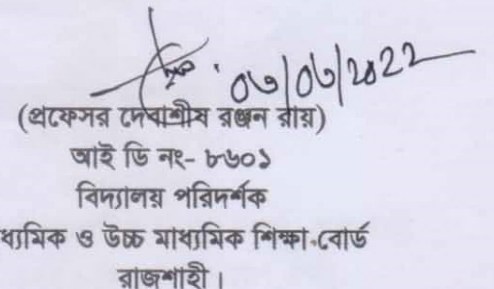 ০৬/০৬/2022
(প্রফেসর দেবাশীষ রঞ্জন রায়)
আই ডি নং- ৮৬০১
বিদ্যালয় পরিদর্শক
ধ্যমিক ও উচ্চ মাধ্যমিক শিক্ষা বোর্ড
রাজশাহী।